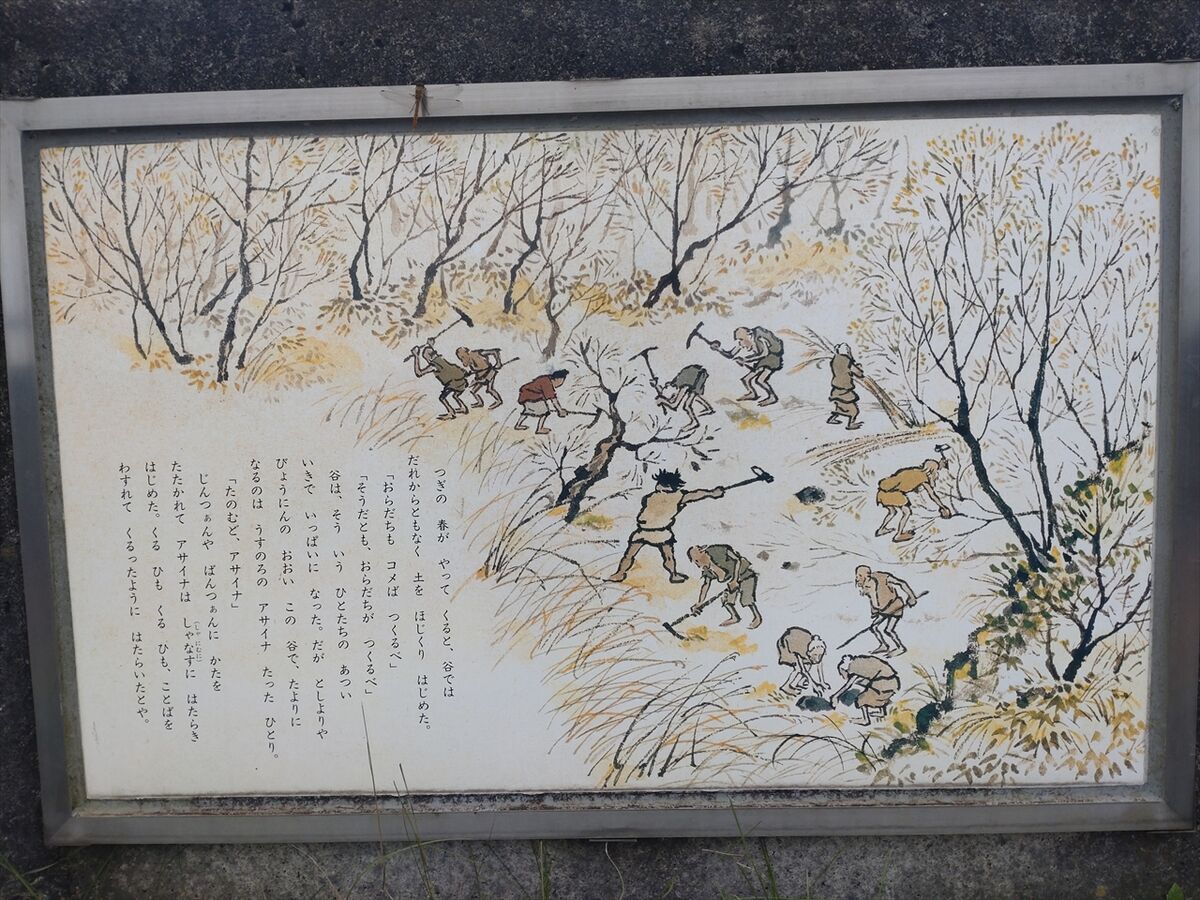 つぎの　春が　やって　くると、谷では
だれからともなく　土を　ほじくり　はじめた。
「おらだちも　コメば　つくるべ」
「そうだとも、おらだちが　つくるべ」
谷は、そう　いう　ひとたちの　あつい
いきで　いっぱいに　なった。だが　としよりや
びょうにんの　おおい　この　谷で、たよりに
なるのは　うすのろの　アサイナ　たった　ひとり。
「たのむと、アサイナ」
じんつぁんや　ばんつぁんに　かたを
たたかれて　アサイナは　しゃなすに（しゃにむに）　はたらき
はじめた。くる　ひも　くる　ひも、ことばを
わすれて　くるったように　はたらいたとや。